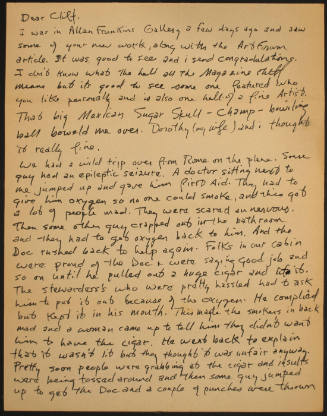 Dear Cliff.
I was in Allan Frumkins Gallery a few days ago and saw
some of your new work, along with the Art Forum
article. It was good to see and i send congradulations.
I don't know what the hell all the Magazine stuff
means but its good to see some one featured who
you like personally and is also one hell of a fine Artist.
That big Mexican Sugar Skull - Champ - bowling
ball bowled me over. Dorothy (my wife) and i thought
it really fine.
We had a wild trip over from Rome on the plane. Some
guy had an epileptic seizure. A doctor sitting next to
me jumped up and gave him First Aid. They had to
give him oxygen so no one could smoke, and this got
a lot of people mad. They were scared an nervous.
Then some other guy crapped out in the bathroom
and they had to get oxygen back to him. And the
Doc rushed back to help again. Folks in our cabin
were proud of the Doc & were saying good job and
so on until he pulled out a huge cigar and lit it.
The stewardess's who were pretty hassled had to ask
him to put it out because of the oxygen. He complied
but kept it in his mouth. This made the smokers in back
mad and a woman came up to tell him they didn't want
him to have the cigar. He went back to explain
that it wasn't lit but they thought it was unfair anyway.
Pretty soon people were grabbing at the cigar and insults
were being tossed around and then some guy jumped
up to get the Doc and a couple of punches were thrown